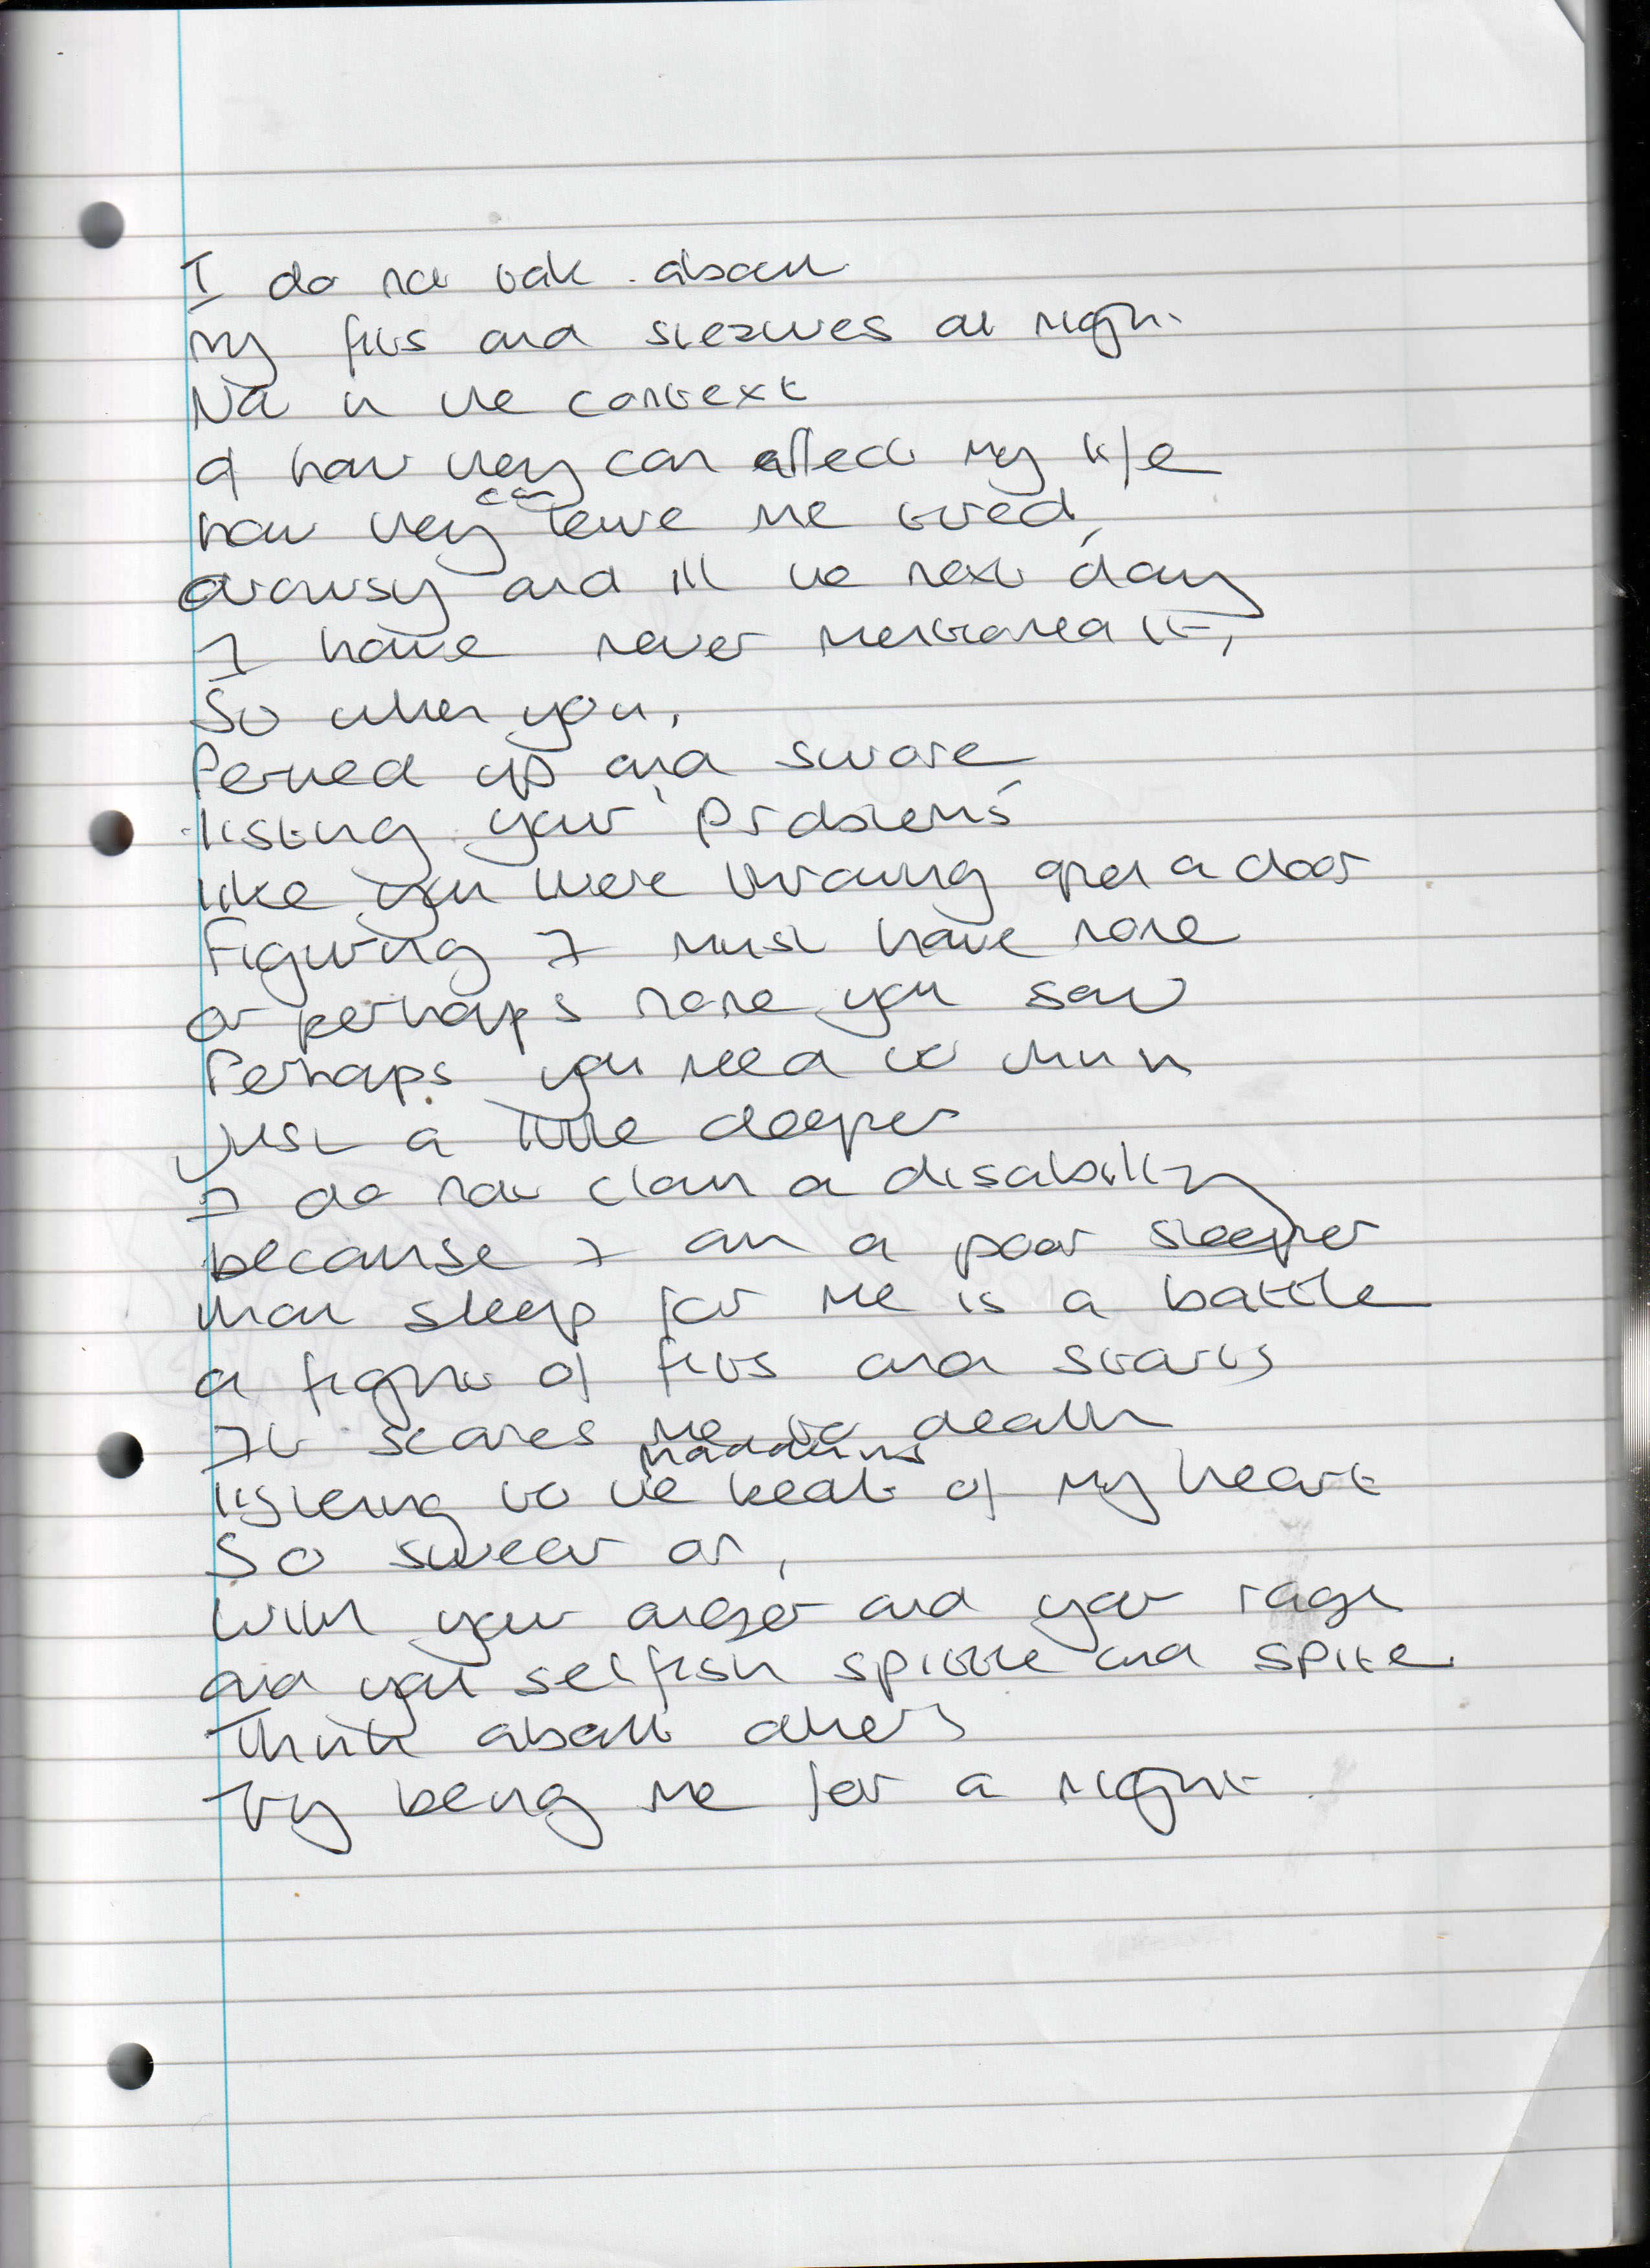 I do not talk about
my fits and seizures at night
Not in the context
of how they can affect my life
how they can leave me tired,
drowsy and ill the next day
I have never mentioned it,
So when you,
and swore
listing your 'problems'
like you were throwing open a door
Figuring I must have none
or perhaps none you saw
Perhaps you need to think
just a little deeper
I do not claim a disability
because I am a poor sleeper
that sleep for me is a battle
a fight of fits and starts
It scares me to death
listening to the beat of my heart
So swear on,
With your anger and your rage
and your selfish spittle and spite.
Think about others
Try being me for a night.